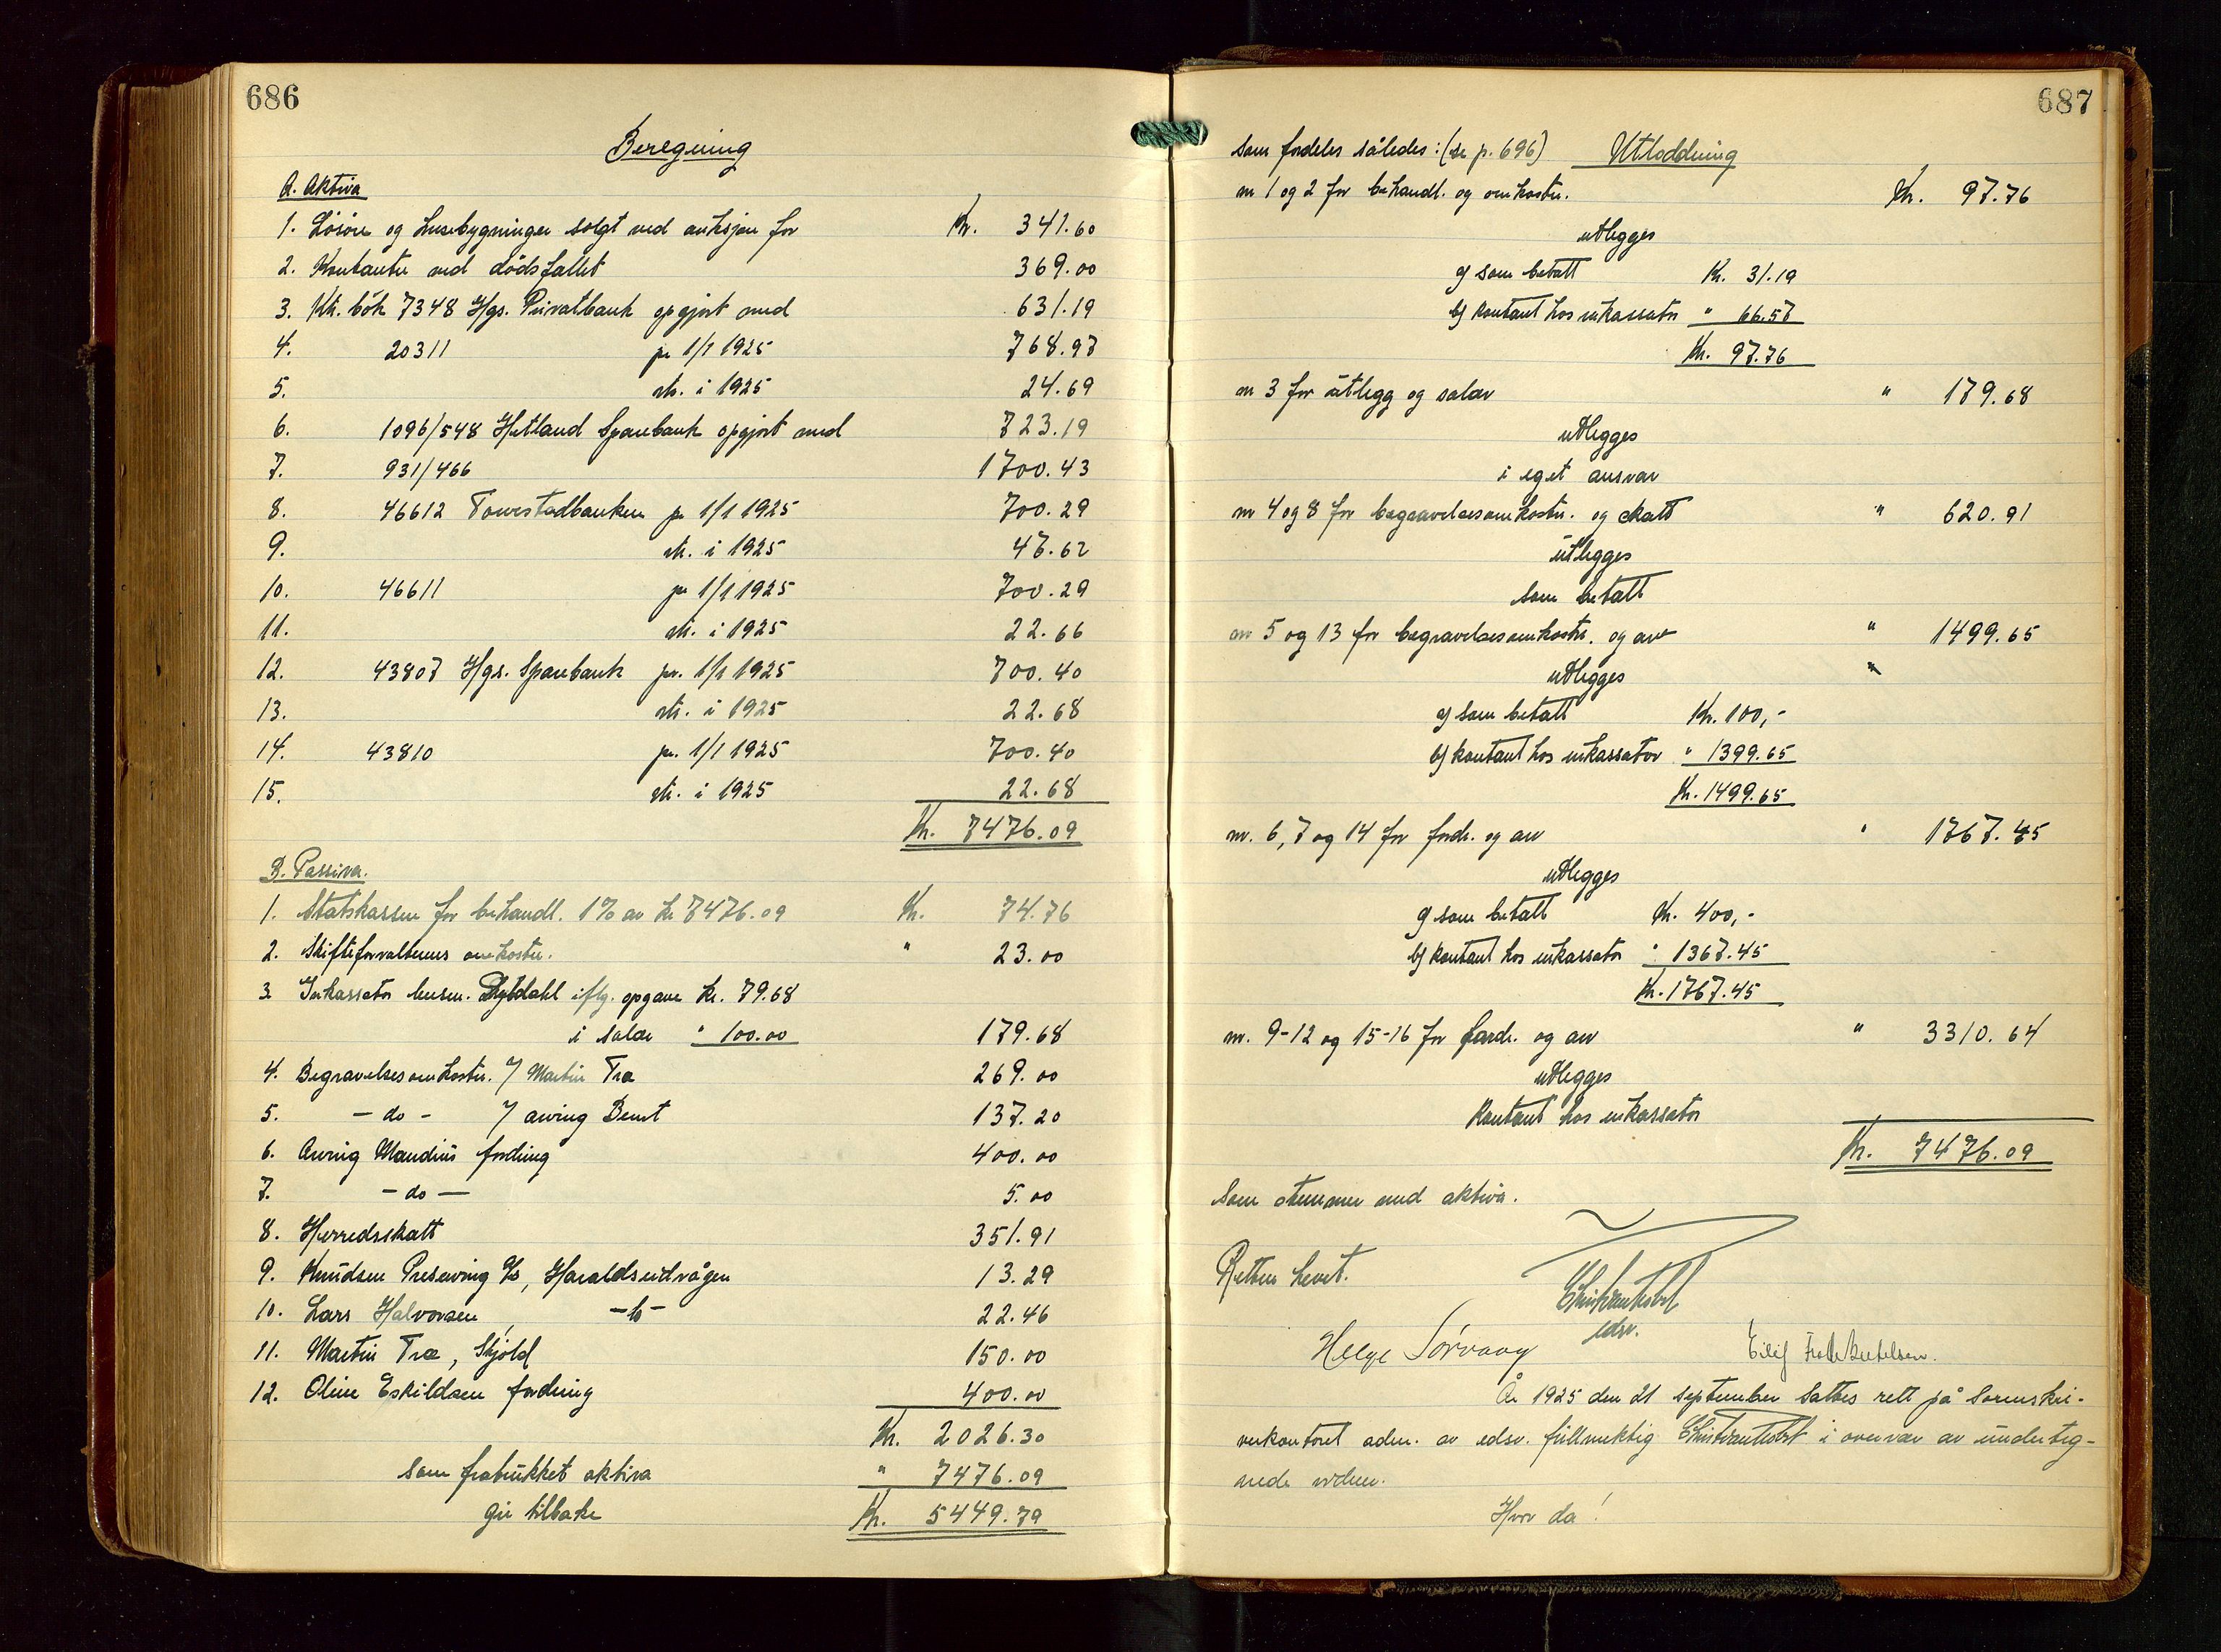 686
Beregning
A. Aktiva
1. Lösöre og husebygninger solgt ved auksjon for Kr. 341.60
2. Kontanter ved dödsfallet 369.00
3. Ktr. bök 7348 Hgs. Privatbank opgjort med 631.19
4. 20311 pr 1/1 1925 768.97
5. rtr. i 1925 24.69
6. 1096/548 Hetland Sparebank opgjort med 723.19
7. 931/466 1700.43
8. 46612 Torvestadbanken pr 1/1 1925 700.29
9. rtr. i 1925 47.62
10. 46611 pr 1/1 1925 700.29
11. rtr. i 1925 22.66
12. 43807 Hgs. Sparebank pr. 1/1 1925 700.40
13. rtr. i 1925 22.68
14. 43810 pr. 1/1 1925 700.40
15. rtr. i 1925 22.68
Kr. 7476.09
B. Passiva.
1. Statskassen for behandl. 1% av kr 7476.09 Kr. 74.76
2. Skifteforvalterens omkostn. " 23.00
3. Inkassator lensm. Dybdahl iflg. opgave kr. 79.68
i salær " 100.00 179.68
4. Begravelsesomkostn. / Martin Træ 269.00
5. - do - / arving Bernt 137.20
6. Arving Maudius fordring 400.00
7. - do - 5.00
8. Herredsskatt 351.91
9. Knudsen Preserving %, Haraldseidvågen 13.29
10. Lars Halvorsen, -"- 22.46
11. Martin Træ, Skjold 150.00
12. Oline Eskildsen fordring 400.00
Kr. 2026.30
som fratrukket aktiva " 7476.09
gir tilbake Kr. 5449.79
687
Som fordeles således: (se p. 696) Utloddning
nr 1 og 2 for behandl. og omkostn. Kr. 97.76
utlegges
a) som betalt Kr. 31.19
b) kontant hos inkassator " 66.57
Kr. 97.76
nr 3 for utlegg og salær " 179.68
utlegges
i eget ansvar
nr 4 og 8 for begravelsesomkostn. og skatt " 620.91
utlegges
som betalt
nr 5 og 13 for begravelsesomkostn. og arv " 1499.65
utlegges "
a) som betalt Kr. 100,-
b) kontant hos inkassator " 1399.65
Kr. 1499.65
nr. 6, 7 og 14 for fordr. og arv " 1767.45
utlegges
a) som betalt Kr. 400,-
b) kontant hos inkassator " 1367.45
Kr. 1767.45
nr. 9-12 og 15-16 for fordr. og arv " 3310.64
utlegges
kontant hos inkassator
Kr. 7476.09
Som stemmer med aktiva.
Retten hevet.
edsv.
Helge Sörvaag Eilif
År 1925 den 21 september sattes rett på Sorenskri-
verkontoret adm. av edsv. fullmektig i overvær av underteg-
nede vidner.
Hvor da!